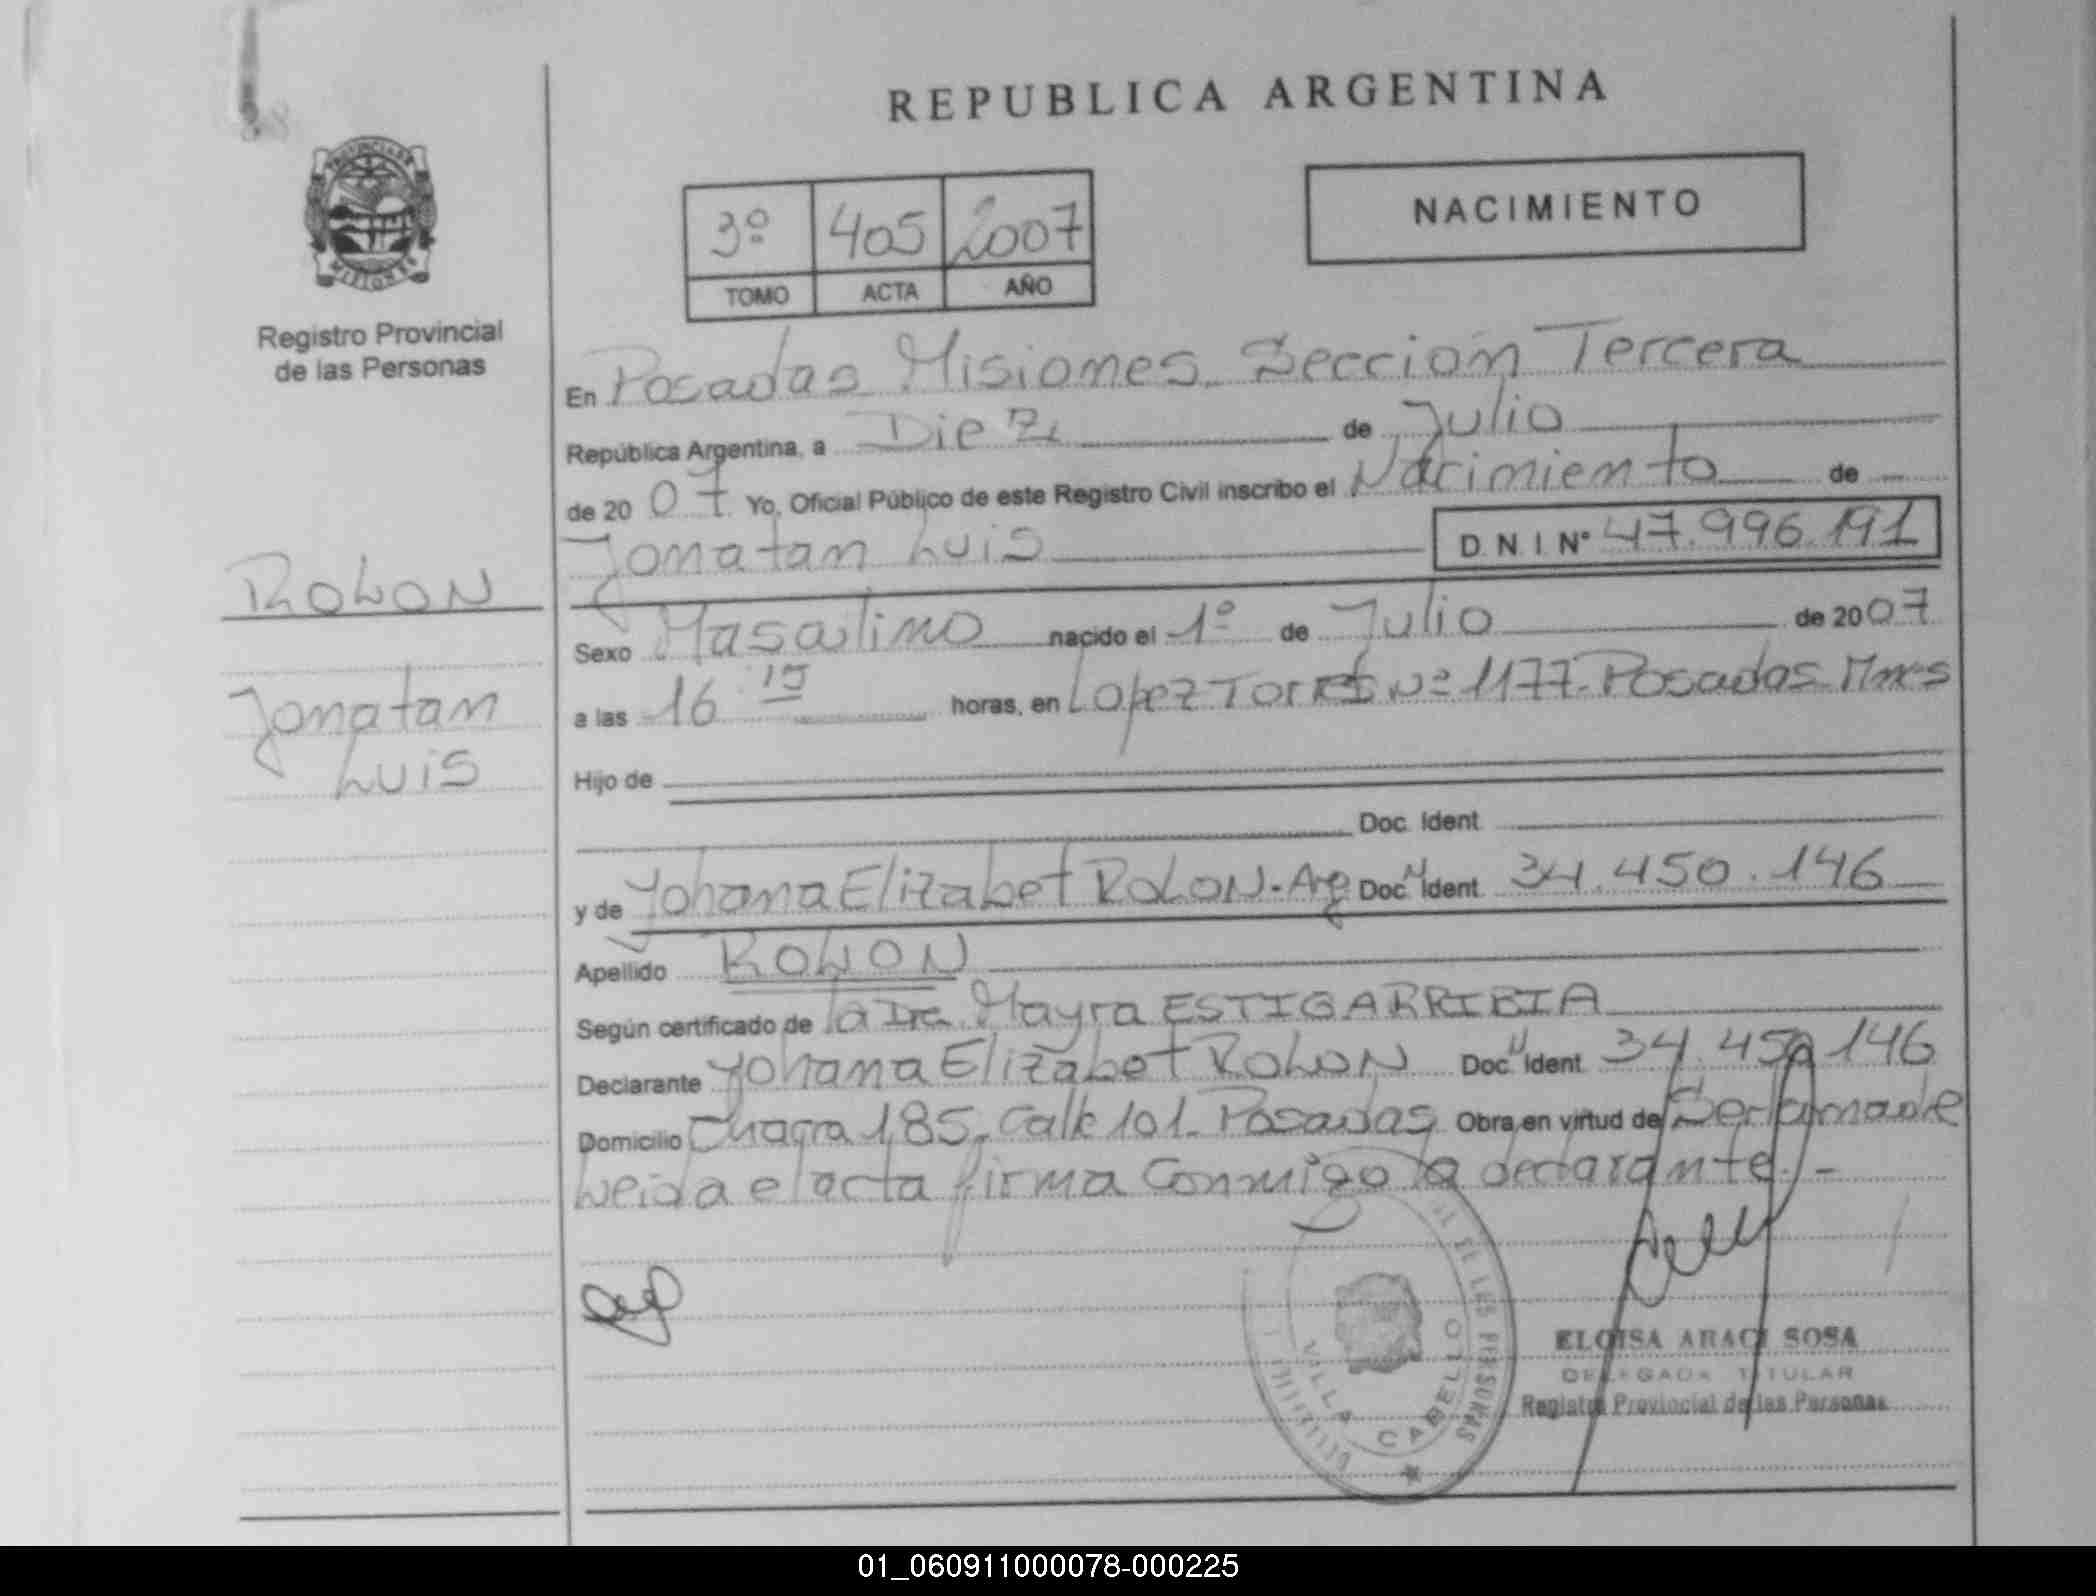 REPUBLICA ARGENTINA
PROVINCIA DE
MISIONES
Registro Provincial
de las Personas
3º 405 2007
TOMO ACTA AÑO
NACIMIENTO
En Posadas Misiones Seccion Tercera
República Argentina, a Diez de Julio
de 2007 Yo, Oficial Público de este Registro Civil inscribo el Nacimiento de
Jonatan Luis D.N.I. Nº 47.996.191
ROLON
Jonatan
Luis
Sexo Masculino nacido el 1º de Julio de 2007
a las 16 15 horas, en Lopez Torres Nº 1177-Posadas Mnes
Hijo de
Doc. Ident.
y de Yohana Elizabet ROLON-Arg Doc. Ident. 34.450.146
Apellido ROLON
Según certificado de la Dra. Mayra ESTIGARRIBIA
Declarante Yohana Elizabet ROLON Doc. Ident. 34.450.146
Domicilio Chacra 185, Calle 101-Posadas Obra en virtud de Ser la madre
Leida el acta firma conmigo la declarante.-
DE LAS PERSONAS
VILLA CABELLO
ELOISA ARACI SOSA
DELEGADA TITULAR
Registro Provincial de las Personas
01_060911000078-000225